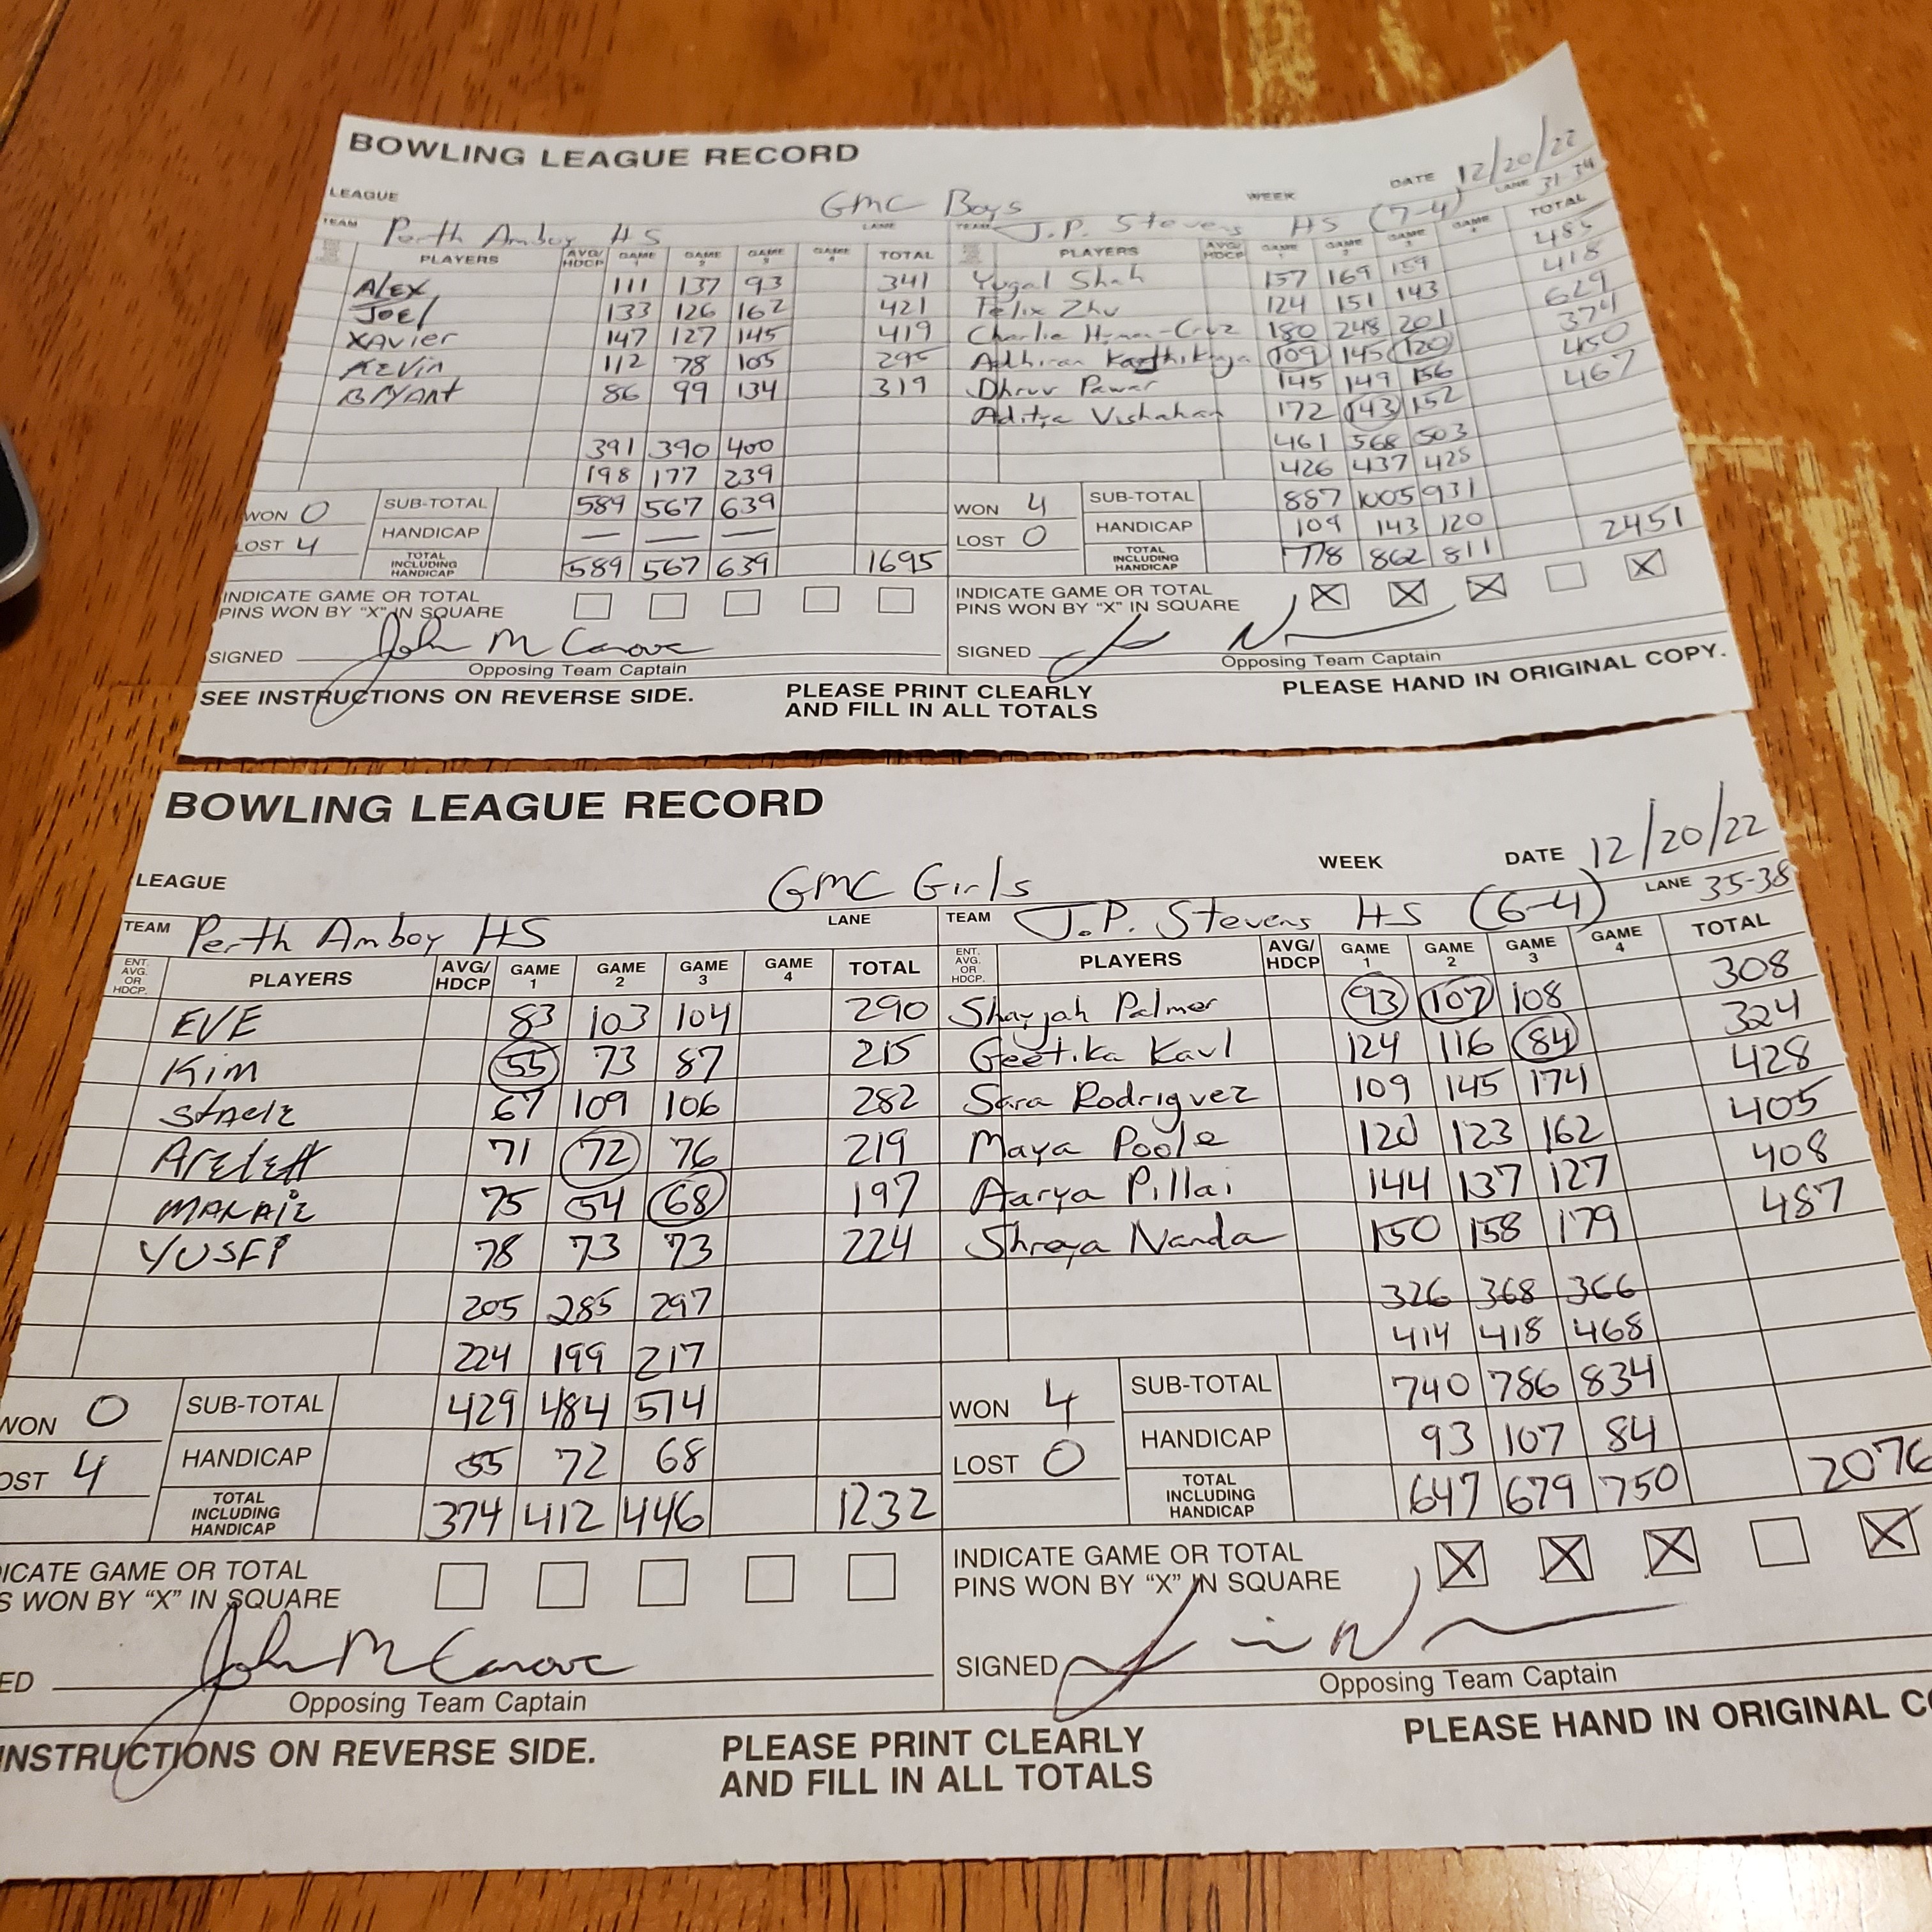 BOWLING LEAGUE RECORD
LEAGUE GMC Boys WEEK DATE 12/20/22
TEAM Perth Amboy HS LANE TEAM J.P. Stevens HS (7-4) LANE 31-34
PLAYERS AVG/HDCP GAME 1 GAME 2 GAME 3 GAME 4 TOTAL PLAYERS AVG/HDCP GAME 1 GAME 2 GAME 3 GAME 4 TOTAL
Alex 111 137 93 341 Yugal Shah 157 169 159 485
Joel 133 126 162 421 Felix Zhu 124 151 143 418
XAvier 147 127 145 419 Charlie Hyman-Cruz 180 248 201 629
KEVin 112 78 105 295 Adhiran 109 145 120 374
BryAnt 86 99 134 319 Dhruv Pawar 145 149 156 450
Aditya 172 143 152 467
391 390 400 461 568 503
198 177 239 426 437 428
WON 0 SUB-TOTAL 589 567 639 WON 4 SUB-TOTAL 887 1005 931
LOST 4 HANDICAP — — — LOST 0 HANDICAP 109 143 120
TOTAL INCLUDING HANDICAP 589 567 639 1695 TOTAL INCLUDING HANDICAP 778 862 811 2451
INDICATE GAME OR TOTAL PINS WON BY "X" IN SQUARE INDICATE GAME OR TOTAL PINS WON BY "X" IN SQUARE X X X X
SIGNED John M Canove SIGNED
Opposing Team Captain Opposing Team Captain
SEE INSTRUCTIONS ON REVERSE SIDE. PLEASE PRINT CLEARLY AND FILL IN ALL TOTALS PLEASE HAND IN ORIGINAL COPY.
BOWLING LEAGUE RECORD
LEAGUE GMC Girls WEEK DATE 12/20/22
TEAM Perth Amboy HS LANE TEAM J.P. Stevens HS (6-4) LANE 35-38
ENT. AVG. OR HDCP. PLAYERS AVG/HDCP GAME 1 GAME 2 GAME 3 GAME 4 TOTAL ENT. AVG. OR HDCP. PLAYERS AVG/HDCP GAME 1 GAME 2 GAME 3 GAME 4 TOTAL
EVE 83 103 104 290 Shayjah Palmer 93 107 108 308
Kim 55 73 87 215 Geetika Kaul 124 116 84 324
67 109 106 282 Sara Rodriguez 109 145 174 428
71 72 76 219 Maya Poole 120 123 162 405
75 54 68 197 Aarya Pillai 144 137 127 408
YUSEPI 78 73 73 224 Shreya Nanda 150 158 179 487
205 285 297 326 368 366
224 199 217 414 418 468
WON 0 SUB-TOTAL 429 484 514 WON 4 SUB-TOTAL 740 786 834
OST 4 HANDICAP 55 72 68 LOST 0 HANDICAP 93 107 84
TOTAL INCLUDING HANDICAP 374 412 446 1232 TOTAL INCLUDING HANDICAP 647 679 750 2076
DICATE GAME OR TOTAL S WON BY "X" IN SQUARE INDICATE GAME OR TOTAL PINS WON BY "X" IN SQUARE X X X X
ED John M Canove SIGNED
Opposing Team Captain Opposing Team Captain
INSTRUCTIONS ON REVERSE SIDE. PLEASE PRINT CLEARLY AND FILL IN ALL TOTALS PLEASE HAND IN ORIGINAL CO